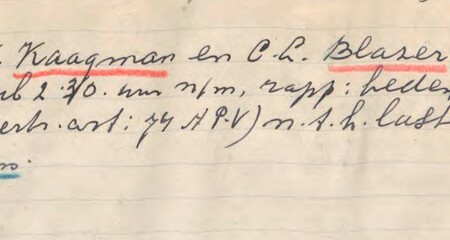 Kaagman en C.L. Blazer
2:30. uur n/m, rapp: heden
art: 74 A P.V) n.t.h. last